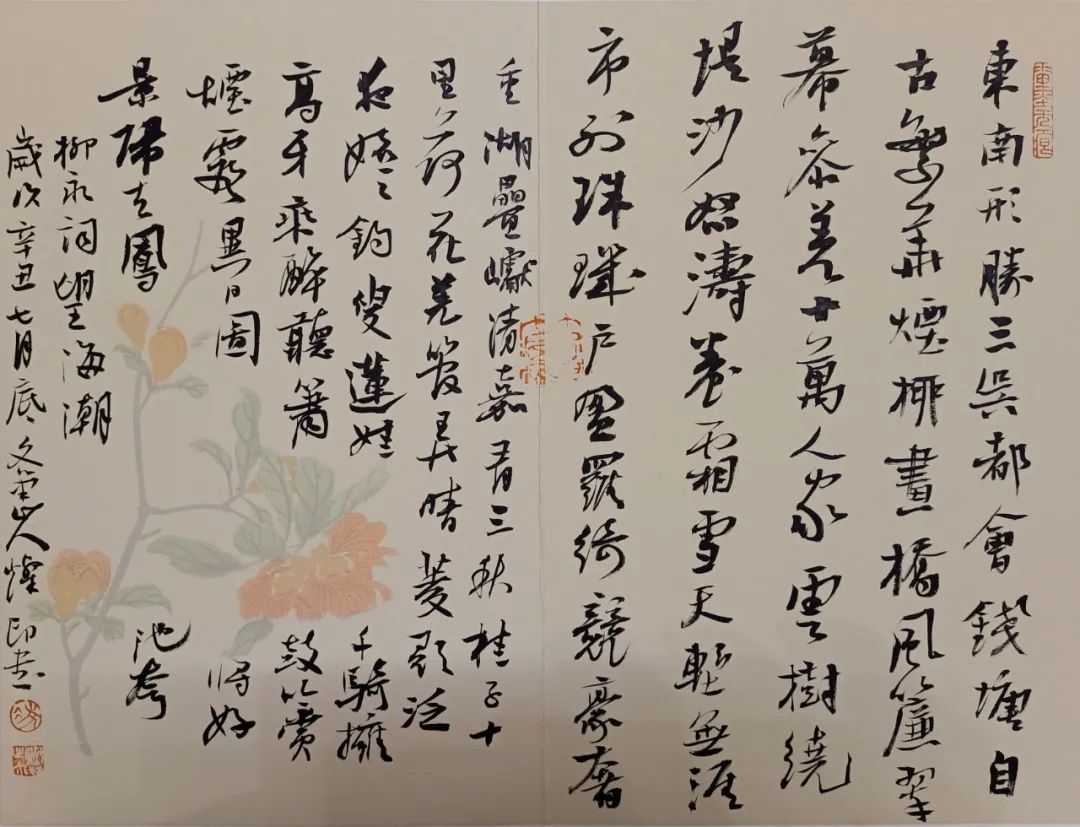 東南形勝三吳都會錢塘自
古繁華煙柳畫橋風簾翠
幕參差十萬人家雲樹繞
堤沙怒濤卷霜雪天塹無涯
市列珠璣戶盈羅綺競豪奢
重湖疊巘清嘉有三秋桂子十
里荷花羌管弄晴菱歌泛
夜嬉々釣叟蓮娃千騎擁
高牙乘醉聽簫鼓吟賞
煙霞異日圖將好
景歸去鳳池夸
柳永詞望海潮
歲次辛丑七月底山人燦印書